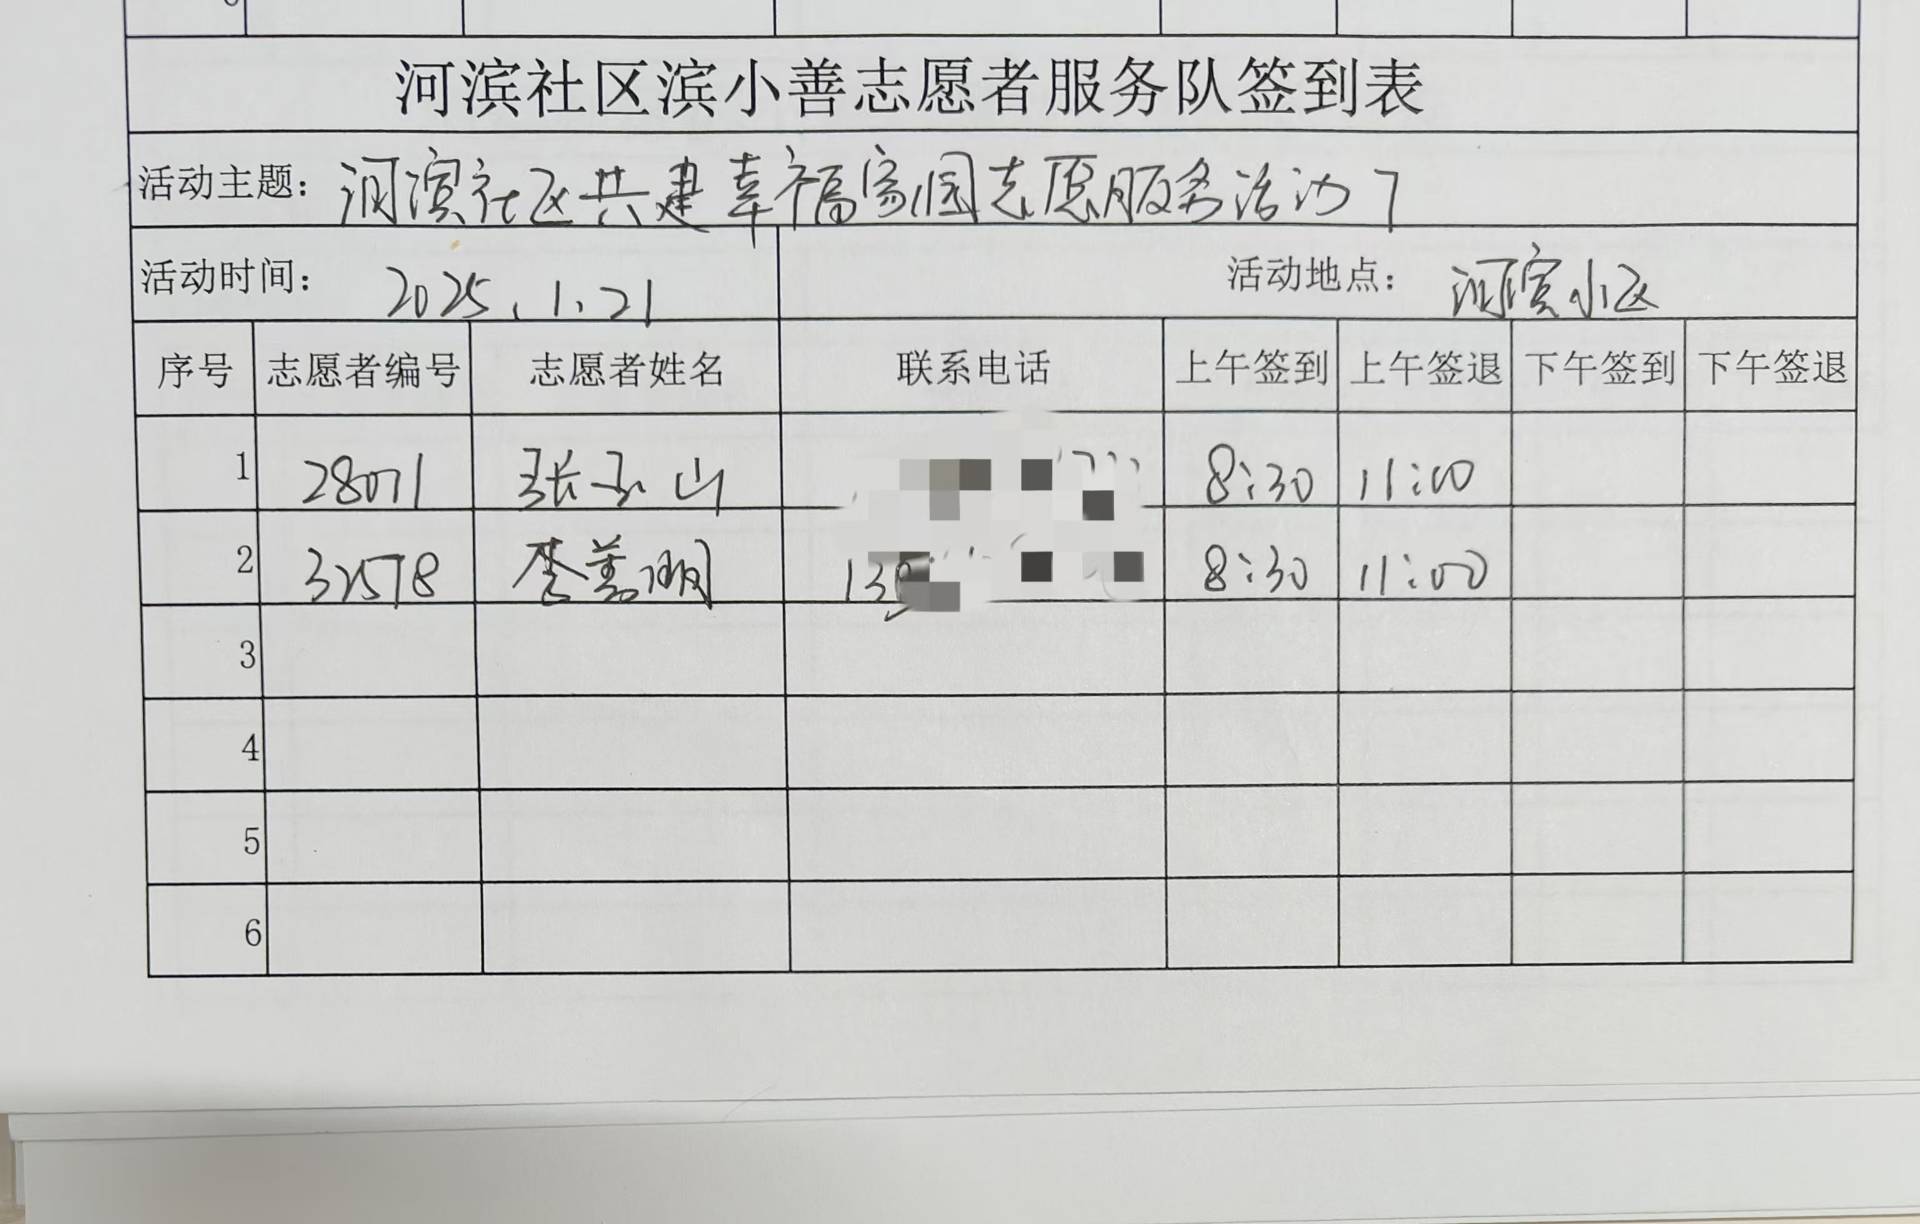 河滨社区滨小善志愿者服务队签到表
活动主题：河滨社区共建幸福家园志愿服务活动
活动时间： 2025.1.21 活动地点： 河滨小区
序号 志愿者编号 志愿者姓名 联系电话 上午签到 上午签退 下午签到 下午签退
1 28071 张玉山 8:30 11:00
2 32578 李善明 8:30 11:00
3
4
5
6